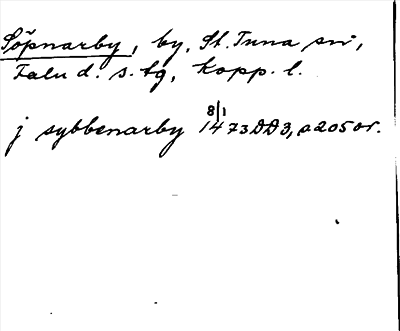 Söpnarby, by, St. Tuna sn,
Falu d. s. tg, Kopp. l.
8/1
j sybbenarby 1473 DD3, a 205 or.